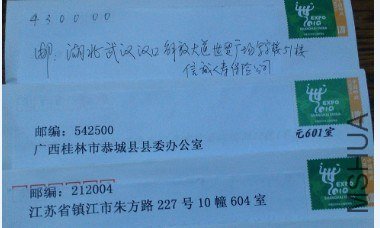 430000
邮: 湖北武汉汉口解放大道世贸广场写字楼51楼
信诚人寿保险公司
EXPO
2010
EXPO
2010
元601室
邮编：542500
广西桂林市恭城县县委办公室
EXPO
2010
邮编：212004
江苏省镇江市朱方路227号10幢604室
MSHUA